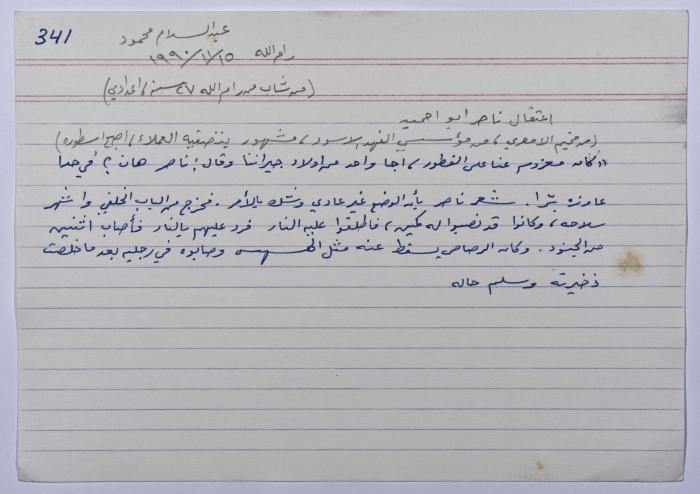 341
عبد السلام محمود
رام الله ١٩٩٠/١١/١٥
(من شاب من رام الله ٢٧ سنة، اعدادي)
اعتقال ناصر ابو احميد
(من مخيم الامعري، من مؤسسي الفهد الاسود، مشهور بتصفية العملاء، اصبح اسطورة)
"كان معزوم عنا على الفطور، اجا واحد من اولاد جيراننا وقال: ناصر هان؟ في حدا
عاوزه برّا. شعر ناصر بأن الوضع غير عادي وشك بالأمر. فخرج من الباب الخلفي واشهر
سلاحه، وكانوا قد نصبوا له كمين، فاطلقوا عليه النار فرد عليهم بالنار فأصاب اثنين
من الجنود. وكان الرصاص يسقط عنه مثل وصابوه في رجليه بعد ما خلصت
ذخيرته وسلم حاله